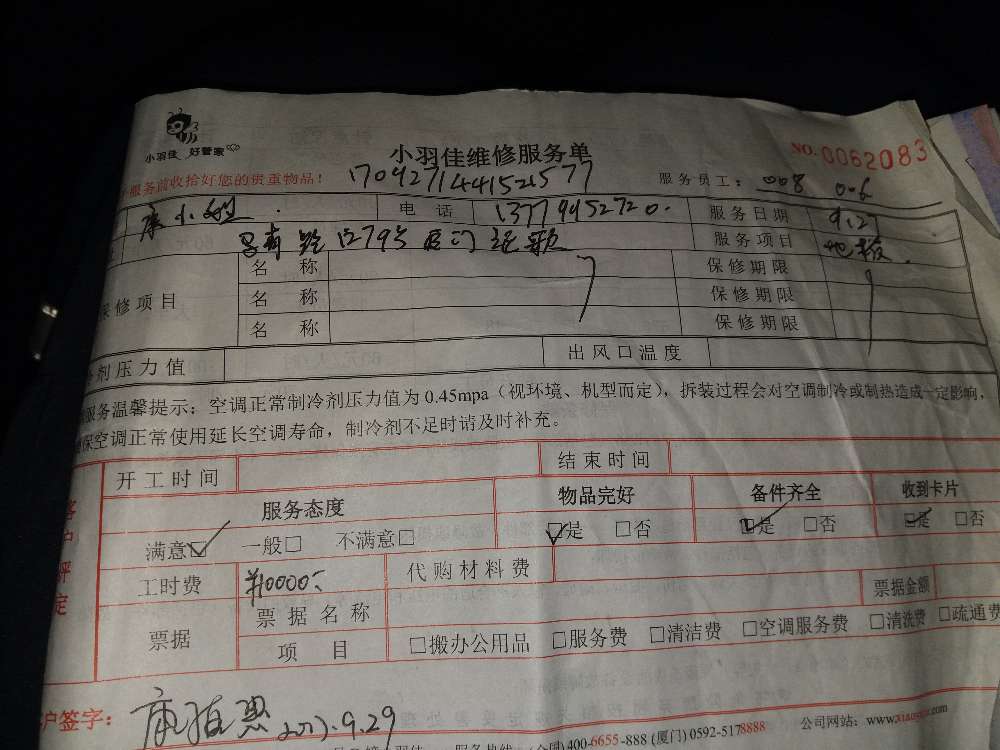 小羽佳 好管家
小羽佳维修服务单
NO.0062083
服务前收拾好您的贵重物品!
170927144152577
服务员工: 008 006
康小
电话 13779452720
服务日期 9.27
1279号后门
服务项目 地板
保修项目
名称 保修期限
名称 保修期限
名称 保修期限
剂压力值 出风口温度
服务温馨提示:空调正常制冷剂压力值为0.45mpa(视环境、机型而定),拆装过程会对空调制冷或制热造成一定影响,
保空调正常使用延长空调寿命,制冷剂不足时请及时补充。
客户评定
开工时间 结束时间
服务态度 物品完好 备件齐全 收到卡片
满意☑ 一般□ 不满意□ ☑是 □否 ☑是 □否 ☑是 □否
工时费 ¥10000 代购材料费
票据 票据名称 票据金额
项目 □搬办公用品 □服务费 □清洁费 □空调服务费 □清洗费 □疏通费
户签字: 康 2017.9.29
(全国)400-6655-888 (厦门)0592-5178888 公司网站:www.